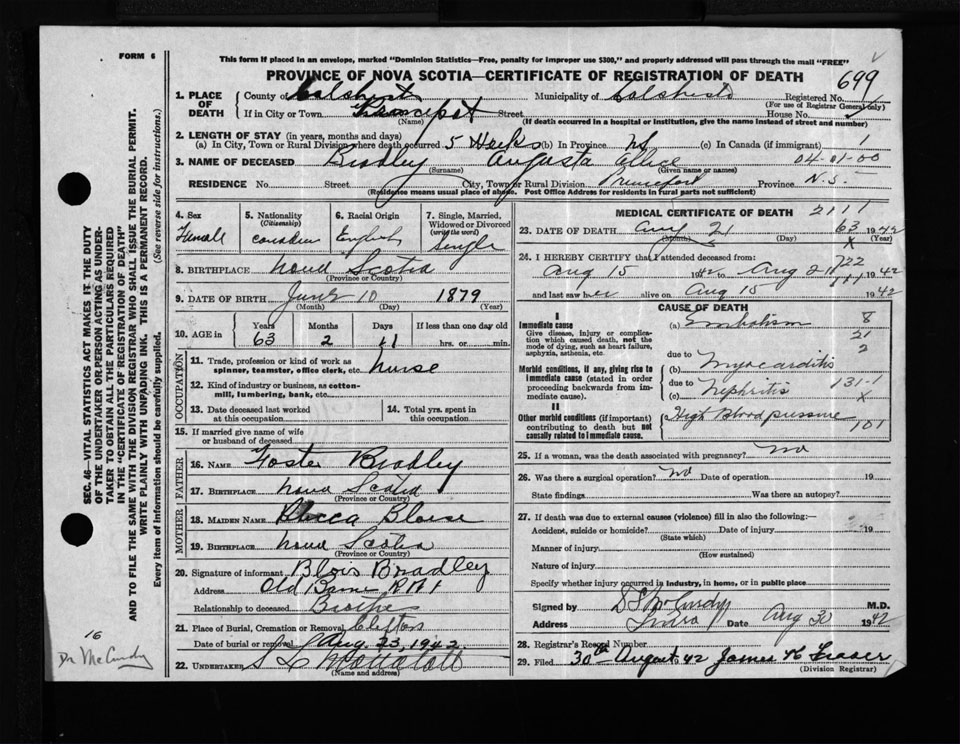 FORM 6
This form if placed in an envelope, marked "Dominion Statistics—Free, penalty for improper use $300," and properly addressed will pass through the mail "FREE"
PROVINCE OF NOVA SCOTIA—CERTIFICATE OF REGISTRATION OF DEATH
699
1. PLACE OF DEATH
County of Colchester Municipality of Colchester Registered No.
(For use of Registrar General only)
If in City or Town Princeport Street House No.
(Name) (If death occurred in a hospital or institution, give the name instead of street and number)
2. LENGTH OF STAY (in years, months and days)
(a) In City, Town or Rural Division where death occurred 5 Weeks (b) In Province (c) In Canada (if immigrant) 1
3. NAME OF DECEASED Bradley Augusta Alice 04-01-00
(Surname) (Given name or names)
RESIDENCE No. Street City, Town or Rural Division Princeport Province N.S.
(Residence means usual place of abode. Post Office Address for Residents in rural parts not sufficient)
4. Sex
Female
5. Nationality
(Citizenship)
Canadian
6. Racial Origin
English
7. Single, Married, Widowed or Divorced
(write the word)
Single
8. BIRTHPLACE Nova Scotia
(Province or Country)
9. DATE OF BIRTH June 10 1879
(Month) (Day) (Year)
10. AGE in
Years Months Days If less than one day old
63 2 11 hrs. or min.
OCCUPATION
11. Trade, profession or kind of work as spinner, teamster, office clerk, etc. Nurse
12. Kind of industry or business, as cotton-mill, lumbering, bank, etc.
13. Date deceased last worked at this occupation
14. Total yrs. spent in this occupation
15. If married give name of wife or husband of deceased
FATHER
16. NAME Foster Bradley
17. BIRTHPLACE Nova Scotia
(Province or Country)
MOTHER
18. MAIDEN NAME
19. BIRTHPLACE Nova Scotia
(Province or Country)
20. Signature of informant Blois Bradley
Address Old Barns R R 1
Relationship to deceased Brother
21. Place of Burial, Cremation or Removal Clifton
Date of burial or removal Aug 23, 1942
22. UNDERTAKER
(Name and address)
MEDICAL CERTIFICATE OF DEATH 2111
23. DATE OF DEATH Aug 21 63 1942
(Month) (Day) X (Year)
24. I HEREBY CERTIFY that I attended deceased from: 722
Aug 15 1942 to Aug 21 1942
and last saw her alive on Aug 15 1942
CAUSE OF DEATH
I
Immediate cause
Give disease, injury or complication which caused death, not the mode of dying, such as heart failure, asphyxia, asthenia, etc.
(a) Embolism 8
21
2
due to Myocarditis
Morbid conditions, if any, giving rise to immediate cause (stated in order proceeding backwards from immediate cause).
due to Nephritis 131-1
(c) X
II
Other morbid conditions (if important) contributing to death but not causally related to immediate cause.
High Blood pressure
101
25. If a woman, was the death associated with pregnancy? No
26. Was there a surgical operation? No Date of operation 19
State findings Was there an autopsy?
27. If death was due to external causes (violence) fill in also the following:—
Accident, suicide or homicide? Date of injury 19
(State which)
Manner of injury
(How sustained)
Nature of injury
Specify whether injury occurred in industry, in home, or in public place
Signed by M.D.
Address Truro Date Aug 30 1942
28. Registrar's Record Number
29. Filed 30th August 42 James K Fraser
(Division Registrar)
SEC. 46—VITAL STATISTICS ACT MAKES IT THE DUTY
OF THE UNDERTAKER OR PERSON ACTING AS UNDER-
TAKER TO OBTAIN ALL THE PARTICULARS REQUIRED
IN THE "CERTIFICATE OF REGISTRATION OF DEATH"
AND TO FILE THE SAME WITH THE DIVISION REGISTRAR WHO SHALL ISSUE THE BURIAL PERMIT.
WRITE PLAINLY WITH UNFADING INK. THIS IS A PERMANENT RECORD.
Every item of information should be carefully supplied. (See reverse side for instructions.)
16
Dr McCurdy